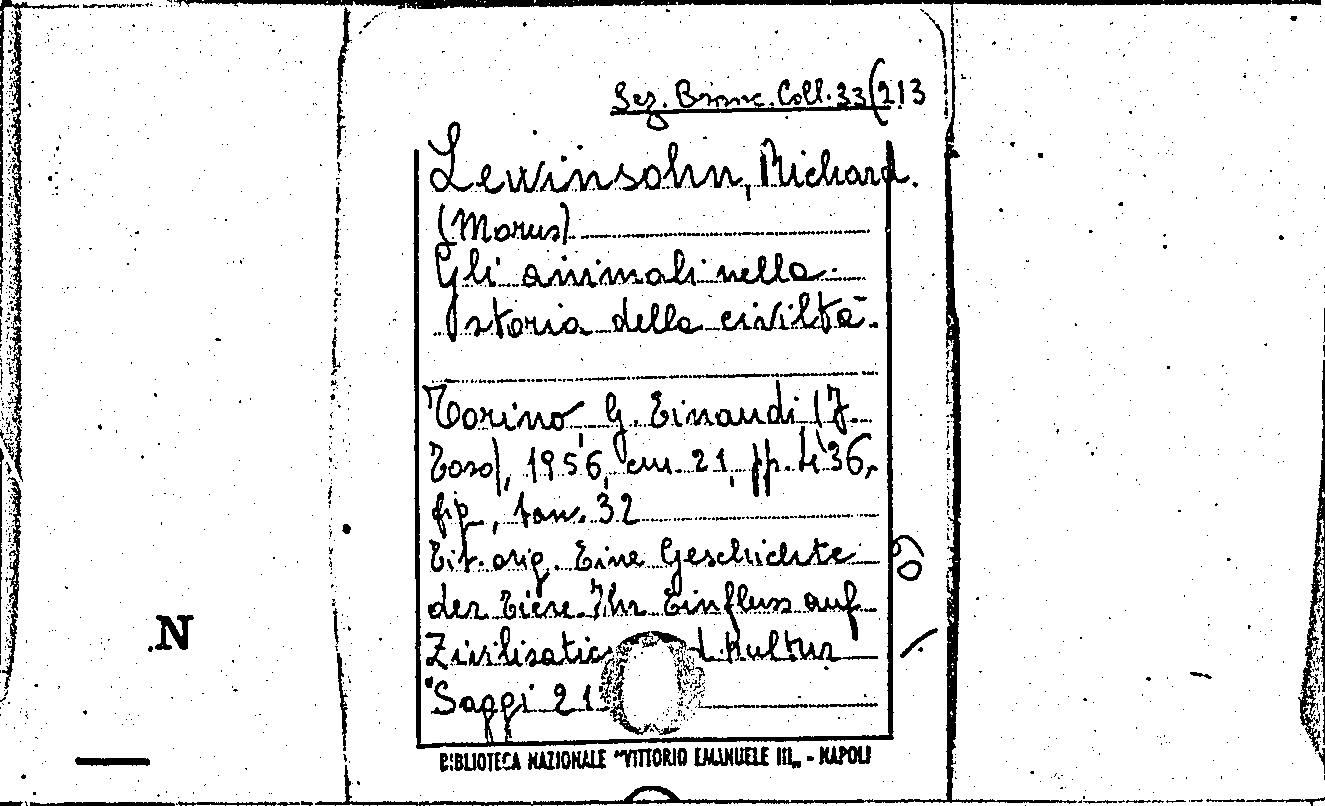 Sez. Branc. Coll. 33(213
Lewinsohn, Richard.
(Morus)
Gli animali nella
storia della civiltà.
Torino, G. Einaudi (F.
Toso), 1956, cm. 21, pp. 436,
fig., tav. 32
Tit. orig. Eine Geschichte
der Tiere. Ihr Einfluss auf
Kultur
Saggi
60
N
BIBLIOTECA NAZIONALE "VITTORIO EMANUELE III„ - NAPOLI